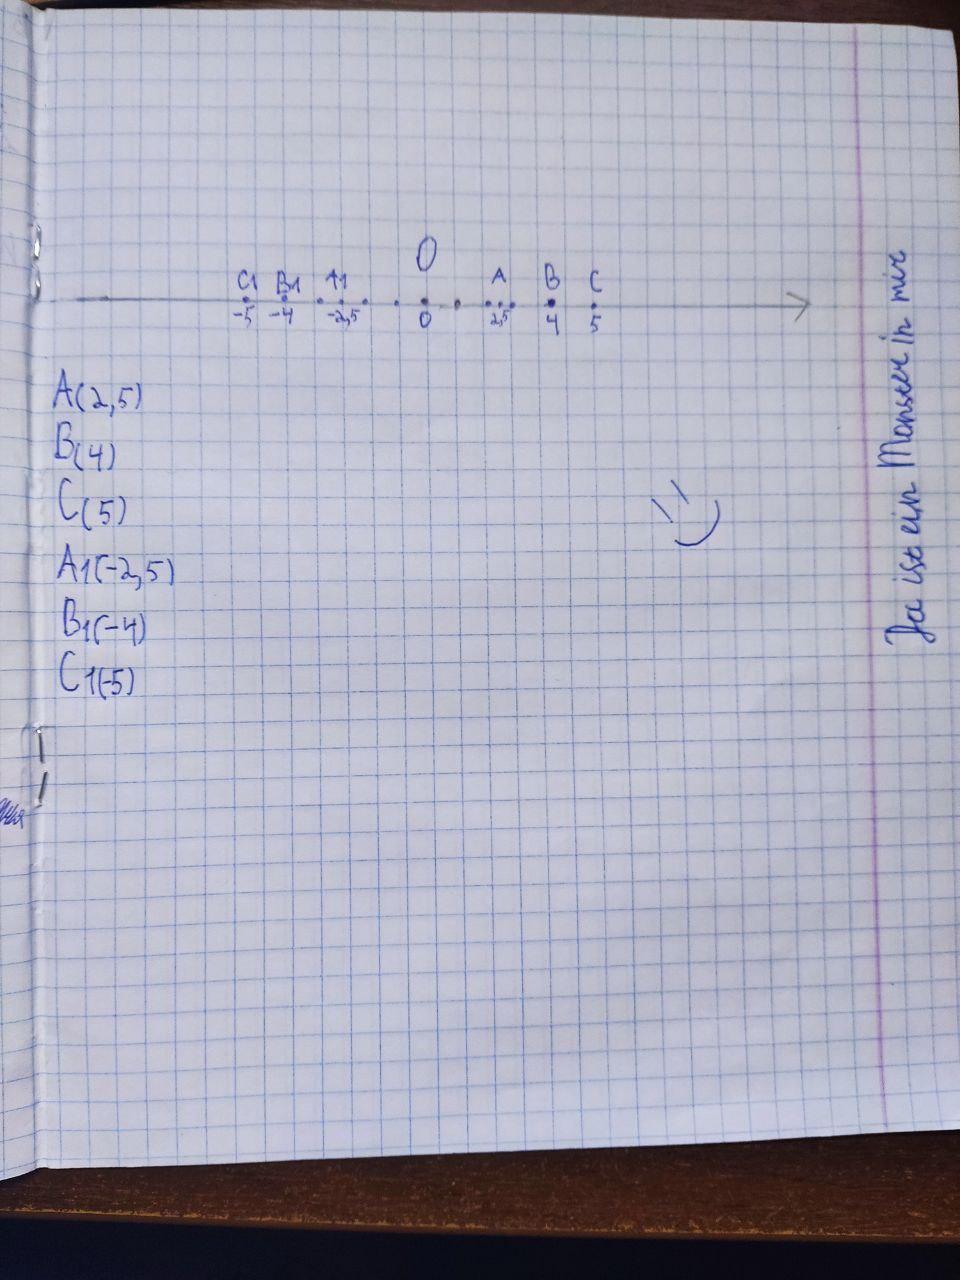 O
C1 B1 A1 A B C
-5 -4 -2,5 0 2,5 4 5
A(2,5)
B(4)
C(5)
A1(-2,5)
B1(-4)
C1(-5)
Da ist ein Monster in mir